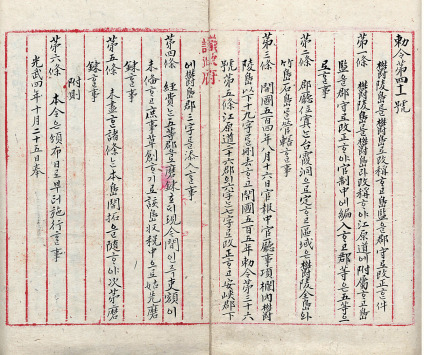 勅令第四十一號
鬱陵島를鬱島로改稱ᄒᆞ고島監을郡守로改正ᄒᆞᆫ件
第一條 鬱陵島를鬱島라改稱ᄒᆞ야江原道에附屬ᄒᆞ고島
監을郡守로改正ᄒᆞ야官制中에編入ᄒᆞ고郡等은五等으
로ᄒᆞᆯ事
第二條 郡廳位寘는台霞洞으로定ᄒᆞ고區域은鬱陵全島와
竹島石島를管轄ᄒᆞᆯ事
第三條 開國五百四年八月十六日官報中官廳事項欄內鬱
陵島以下十九字를刪去ᄒᆞ고開國五百五年勅令第三十六
號第五條江原道二十六郡의六字는七字로改正ᄒᆞ고安峽郡下
議政府
에鬱島郡三字를添入ᄒᆞᆯ事
第四條 經費는五等郡으로磨鍊호ᄃᆡ現今間인즉吏額이
未備ᄒᆞ고庶事草創ᄒᆞ기로該島收稅中으로姑先磨
鍊ᄒᆞᆯ事
第五條 未盡ᄒᆞᆫ諸條는本島開拓을隨ᄒᆞ야次第磨
鍊ᄒᆞᆯ事
附則
第六條 本令은頒布日로부터施行ᄒᆞᆯ事
光武四年十月二十五日奉